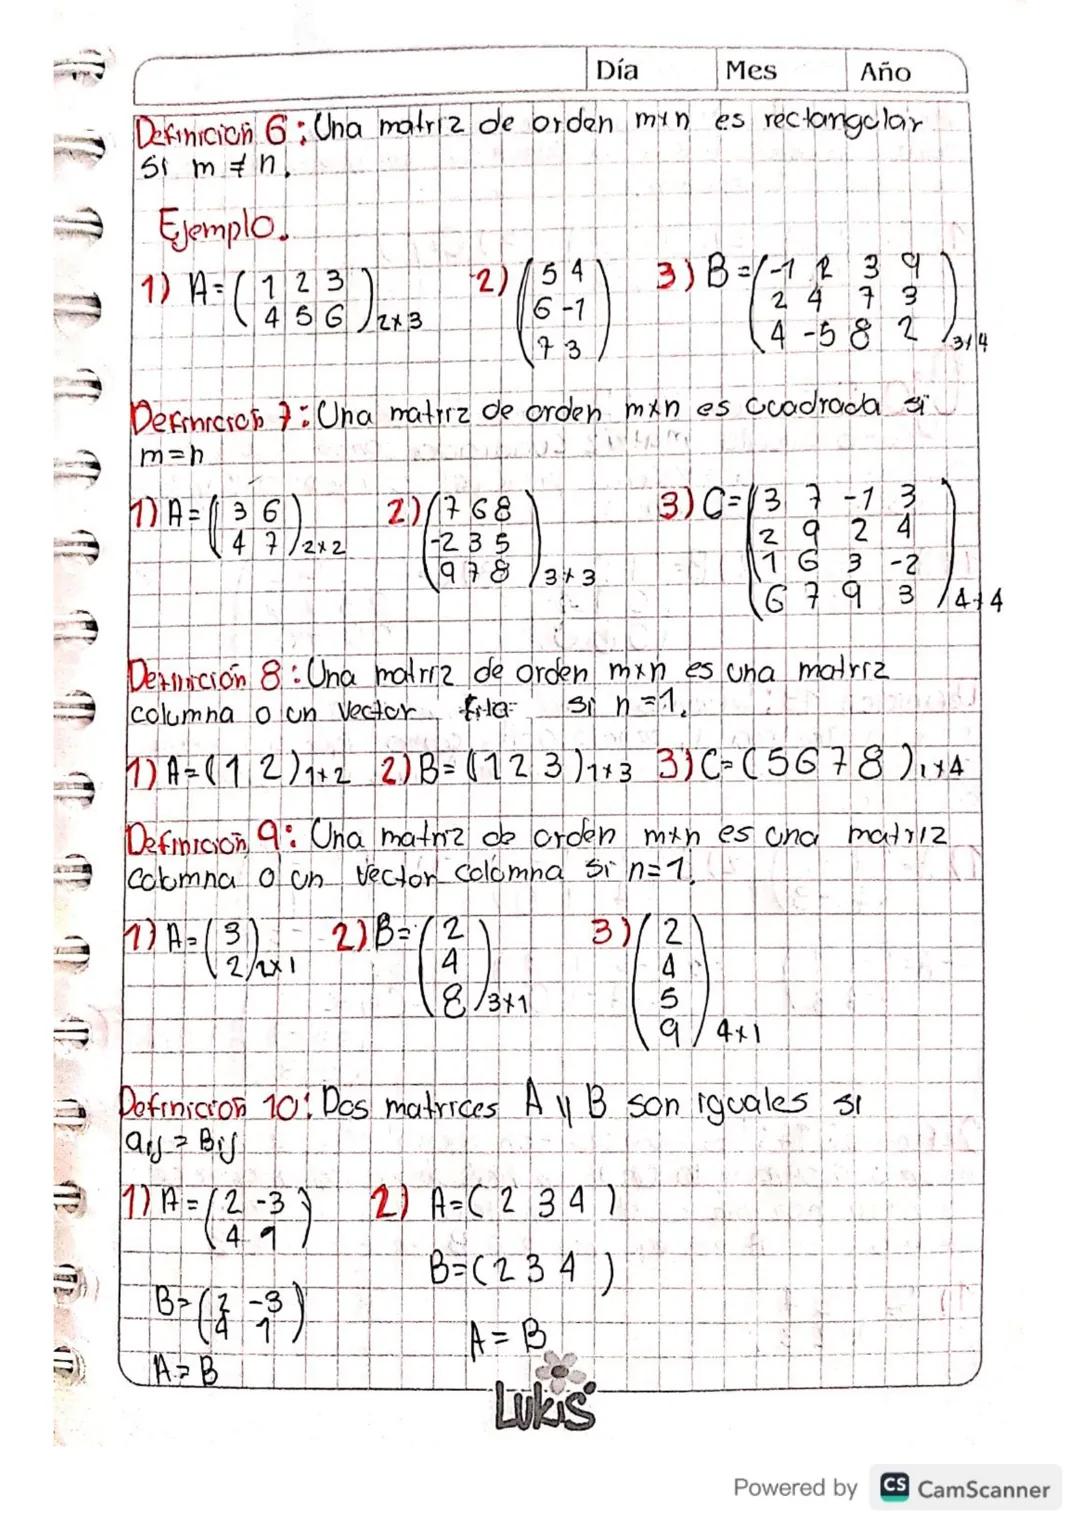 Día Mes Año
Definición 6: Una matriz de orden mxn es rectangular
si m ≠ n.
Ejemplo.
1) A= ( 1 2 3 2) ( 5 4 3) B = ( -1 2 3 9
4 5 6 ) 2x3 6 -1 2 4 7 3
7 3 ) 4 -5 8 2 ) 3x4
Definición 7: Una matriz de orden mxn es cuadrada si
m=n
1) A= ( 3 6 2) ( 7 6 8 3) C= ( 3 7 -1 3
4 7 ) 2x2 -2 3 5 2 9 2 4
9 7 8 ) 3x3 1 6 3 -2
6 7 9 3 ) 4x4
Definición 8: Una matriz de orden mxn es una matriz
columna o un vector fila si n=1.
1) A=(1 2)1x2 2) B=(1 2 3)1x3 3) C=(5 6 7 8)1x4
Definición 9: Una matriz de orden mxn es una matriz
columna o un vector colomna si n=1.
1) A= ( 3 2) B= ( 2 3) ( 2
2 ) 2x1 4 4
8 ) 3x1 5
9 ) 4x1
Definición 10: Dos matrices A y B son iguales si
aij = Bij
1) A = ( 2 -3 2) A=( 2 3 4 )
4 1 )
B=(2 3 4 )
B= ( 2 -3
4 1 )
A = B
A = B
Lukis
Powered by CS CamScanner